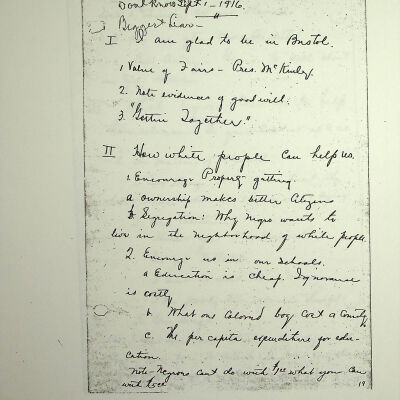 Dont Know Sept. 1 - 1916.
Biggest Liar - "
I I am glad to be in Bristol.
1 Value of Fairs - Pres. McKinley.
2. Note evidences of good will.
3. "Gettin Together."
II How white people can help us.
1. Encourage Property getting.
a ownership makes better Citizens
b Segregation: Why Negro wants to
live in the neighborhood of white people.
2. Encourage us in our schools.
a Education is cheap. Ignorance
is costly
b. What one Colored boy cost a County
c. The per capita expenditure for edu-
cation.
Note Negroes cant do with what you can
with